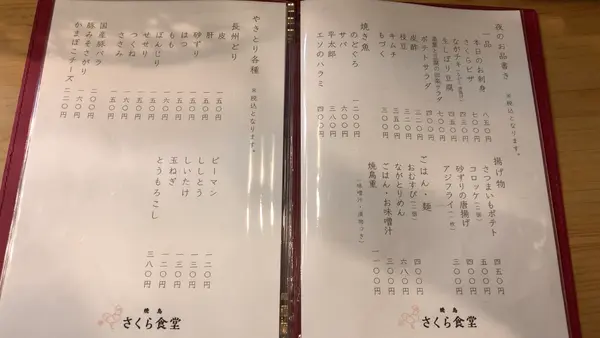 夜のお品書き ※税込となります。
一品
本日のお刺身 八五〇円
さくらピザ 七〇〇円
ながチキ 四三〇円
生しぼり豆腐 四五〇円
サラダ 七〇〇円
ポテトサラダ 四〇〇円
皮酢 三二〇円
枝豆 三〇〇円
キムチ 三五〇円
もづく 三〇〇円
焼き魚
のどぐろ 一二〇〇円
サバ 六〇〇円
平太郎 三八〇円
エソのハラミ 四〇〇円
揚げ物
さつまいもポテト 四五〇円
コロッケ(二個) 五〇〇円
砂ずりの唐揚げ
アジフライ(一枚) 三〇〇円
ごはん・麺
おむすび(二個) 四〇〇円
ながとりめん 六八〇円
ごはん・お味噌汁 三〇〇円
焼鳥重 一一〇〇円
(味噌汁・漬物つき)
焼鳥
さくら食堂
やきとり各種 ※税込となります。
長州どり
皮 一五〇円
肝 一五〇円
砂ずり 一五〇円
はつ 一五〇円
もも 一五〇円
ぼんじり 一五〇円
せせり 一六〇円
つくね 一六〇円
ささみ 一五〇円
国産豚バラ 二〇〇円
豚みそさがり 一六〇円
かまぼこチーズ 二二〇円
ピーマン 一二〇円
ししとう 一三〇円
しいたけ 一三〇円
玉ねぎ 一三〇円
とうもろこし 三八〇円
焼鳥
さくら食堂